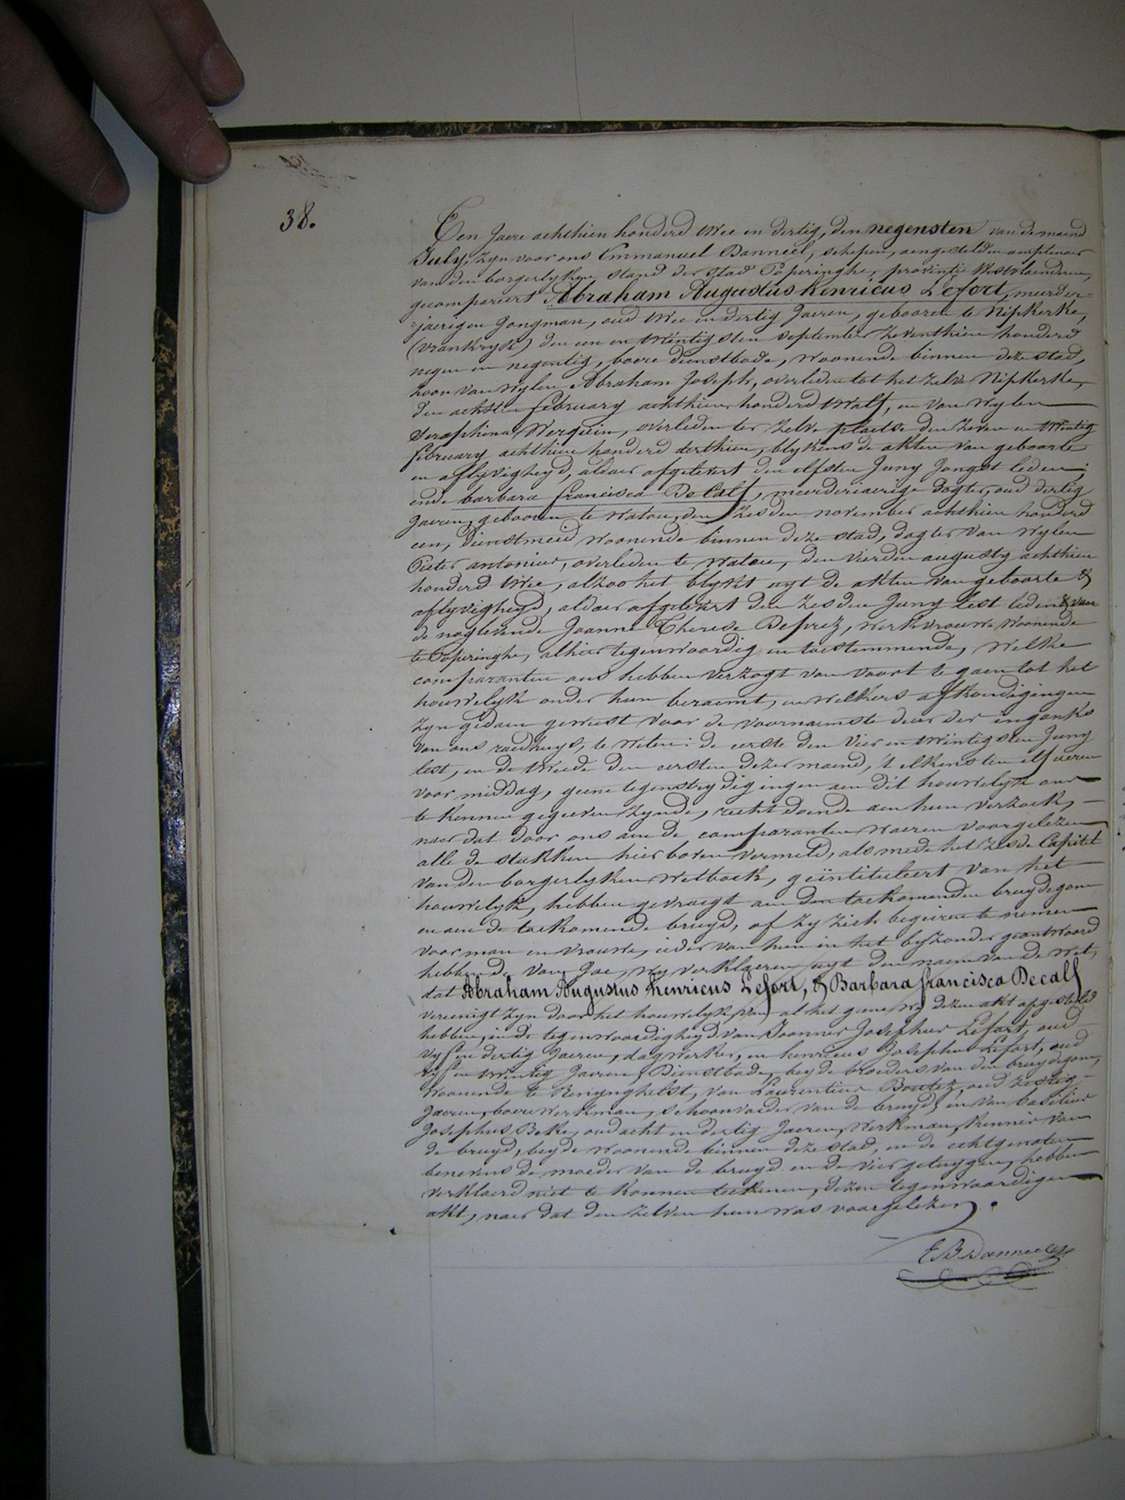 38.
Den Jaere achthien honderd twee en dertig, den negensten van de maend
July, zyn voor ons Emmanuel Banneel, schepen, aengestelden amptenaer
van den borgerlyken stand der stad Poperinghe, provintie Westvlaenderen,
gecompareert Abraham Augustus Henricus Lefort, meerder-
-jaerigen Jongman, oud twee en dertig Jaeren, gebooren te Nipkerke,
(vrankryk) den een en twintigsten september zeventhien honderd
negen en negentig, boere dienstbode, woonende binnen deze stad,
zoon van wylen Abraham Joseph, overleden tot het zelve Nipkerke,
den achsten february achthien honderd twalf, en van wylen
Seraphina Werquin, overleden ter zelve plaetse den zeven en twintig
february achthien honderd derthien, blykens de akten van geboorte
en aflyvigheyd, aldaer afgelevert den elfsten Juny Jongst leden;
ende barbara francisca De Calf, meerderjaerige dogter, oud dertig
Jaeren, gebooren te Watou, den zesden november achthien honderd
een, dienstmeid woonende binnen deze stad, dogter van wylen
Pieter antonius, overleden te Watou, den vierden augusty achthien
honderd twee, alzoo het blykt uyt de akten van geboorte &
aflyvigheyd, aldaer afgelevert den zesden Juny lest leden & van
de noglevende Joanne Therese Deprez, werkvrouwe woonende
te Poperinghe, alhier tegenwoordig en toestemmende, welke
comparanten ons hebben verzogt van voort te gaen tot het
houwelyk onder hun beraemt, en welkers afkondigingen
zyn gedaen geweest voor de voornaemste deur der ingank
van ons raedhuys, te weten: de eerste den vier en twintigsten Juny
lest, en de tweede den eersten dezer maend, 't elkens ten elf ueren
voor middag, geene tegenstrydigingen aen dit houwelyk ons
te kennen gegeven zynde, recht doende aen hun verzoek,
naer dat door ons aen de comparanten waeren voorgelezen
alle de stukken hier boven vermeld, als mede het zesde Capitel
van den borgerlyken Wetboek, geïntituleert van het
houwelyk, hebben gevraegt aen den toekomenden bruydegom
en aen de toekomende bruyd, of zy zich begeiren te nemen
voor man en vrouwe, ieder van hun in het byzonder geantwoord
hebbende van Jae, wy verklaeren uyt den naem van de wet,
dat Abraham Augustus Henricus Lefort, & Barbara francisca Decalf
vereenigt zyn door het houwelyk van al het gene wy dezen akt opgesteld
hebben, in de tegenwoordigheyd van Joannes Josephus Lefort, oud
vyf en dertig Jaeren, dagwerker, en henricus Josephus Lefort, oud
vyf en twintig Jaeren, Dienstbode, beyde broeders van den bruydegom,
woonende te Renynghelst, van Laurentius Boutez, oud zestig
Jaeren, boere werkman, schoonvader van de bruyd, en van basilius
Josephus Beke, oud acht en dertig Jaeren, werkman, kennis van
de bruyd, beyde woonende binnen deze stad, en de echtgenoten
benevens de moeder van de bruyd en de vier getuygen, hebben
verklaerd niet te konnen teekenen, dezen tegenwoordigen
akt, naer dat den zelven hun was voorgelezen.
E B Banneel